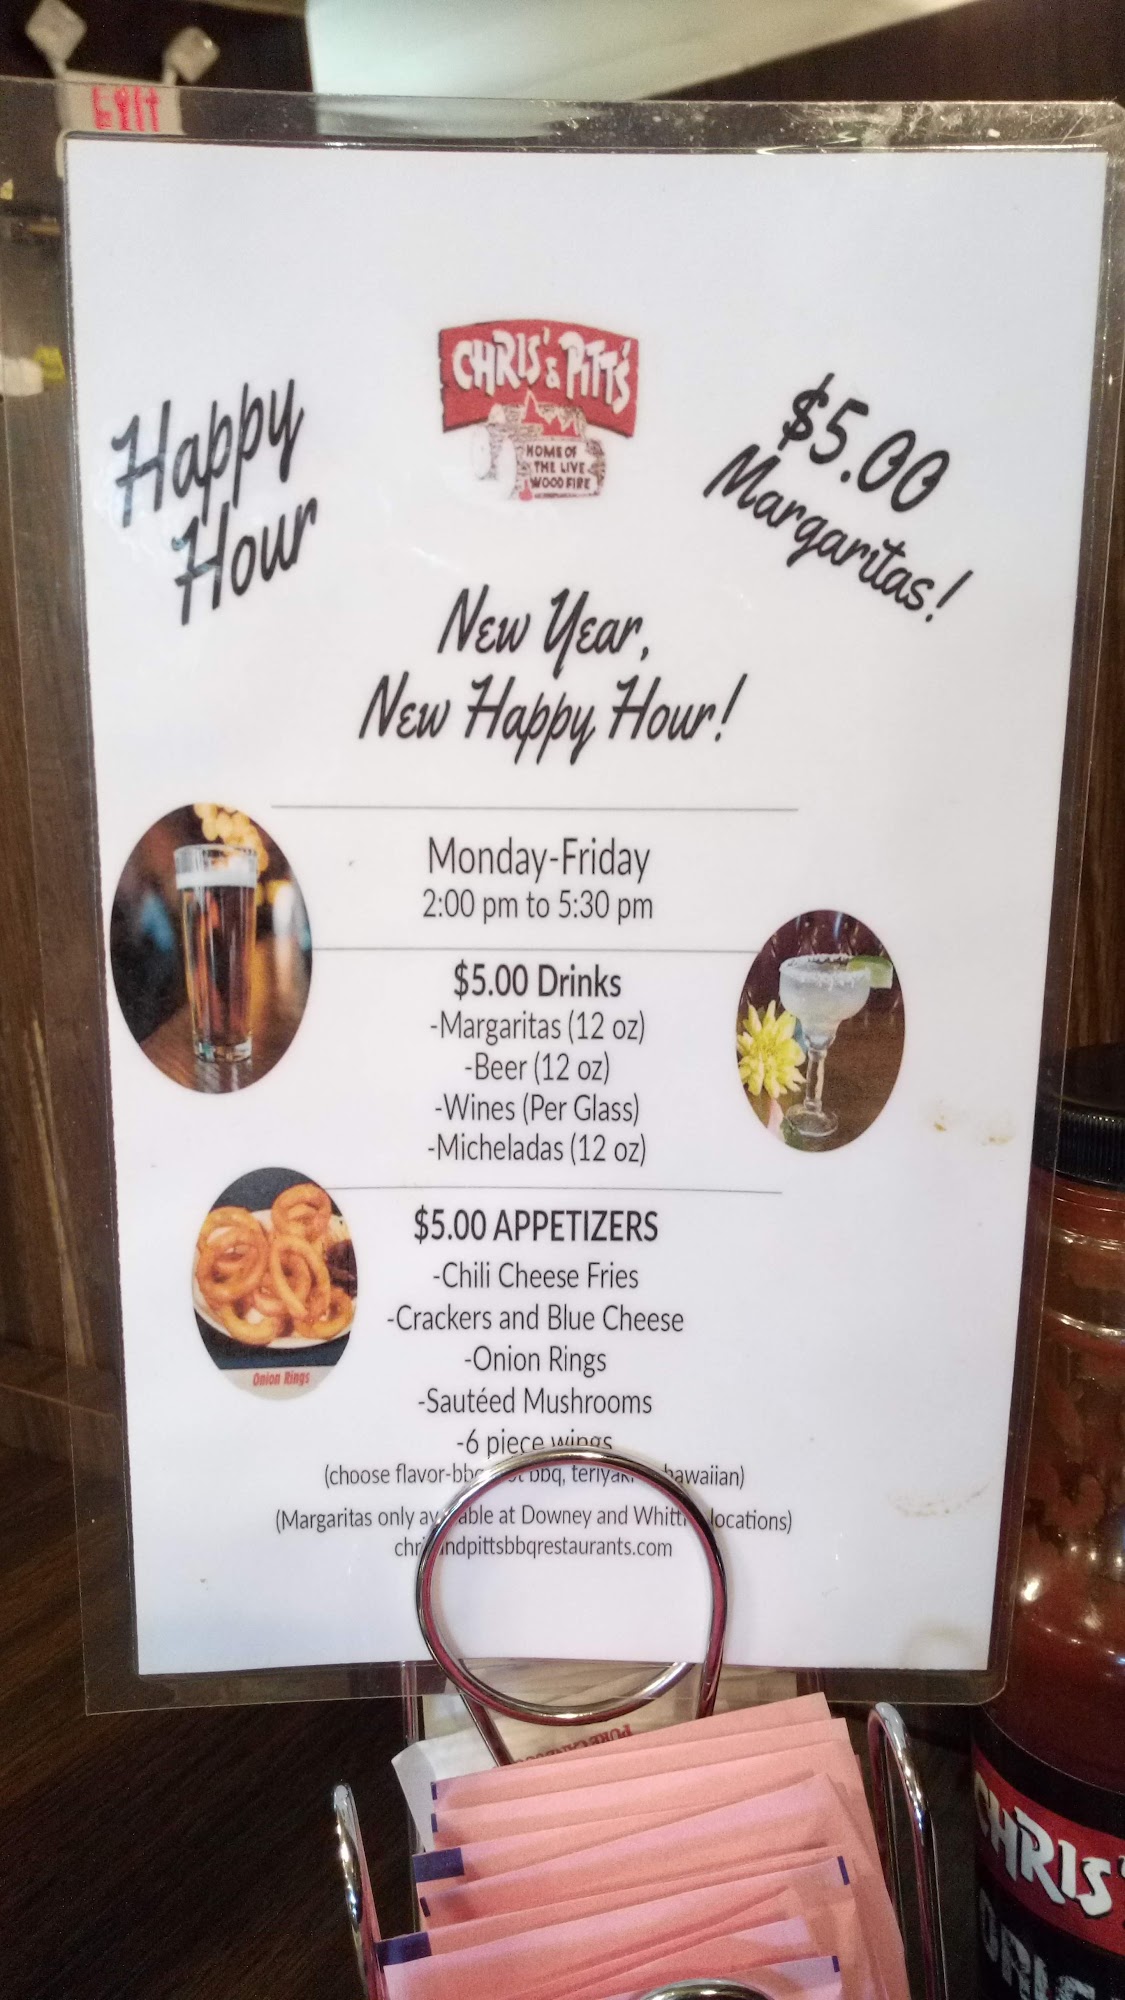 Exit
CHRIS' & PITT'S
HOME OF
THE LIVE
WOOD FIRE
Happy
Hour
$5.00
Margaritas!
New Year,
New Happy Hour!
Monday-Friday
2:00 pm to 5:30 pm
$5.00 Drinks
-Margaritas (12 oz)
-Beer (12 oz)
-Wines (Per Glass)
-Micheladas (12 oz)
$5.00 APPETIZERS
-Chili Cheese Fries
-Crackers and Blue Cheese
-Onion Rings
Onion Rings
-Sautéed Mushrooms
-6 piece wings
(choose flavor-bbq, bbq, hawaiian)
(Margaritas only at Downey and locations)
CHRIS'